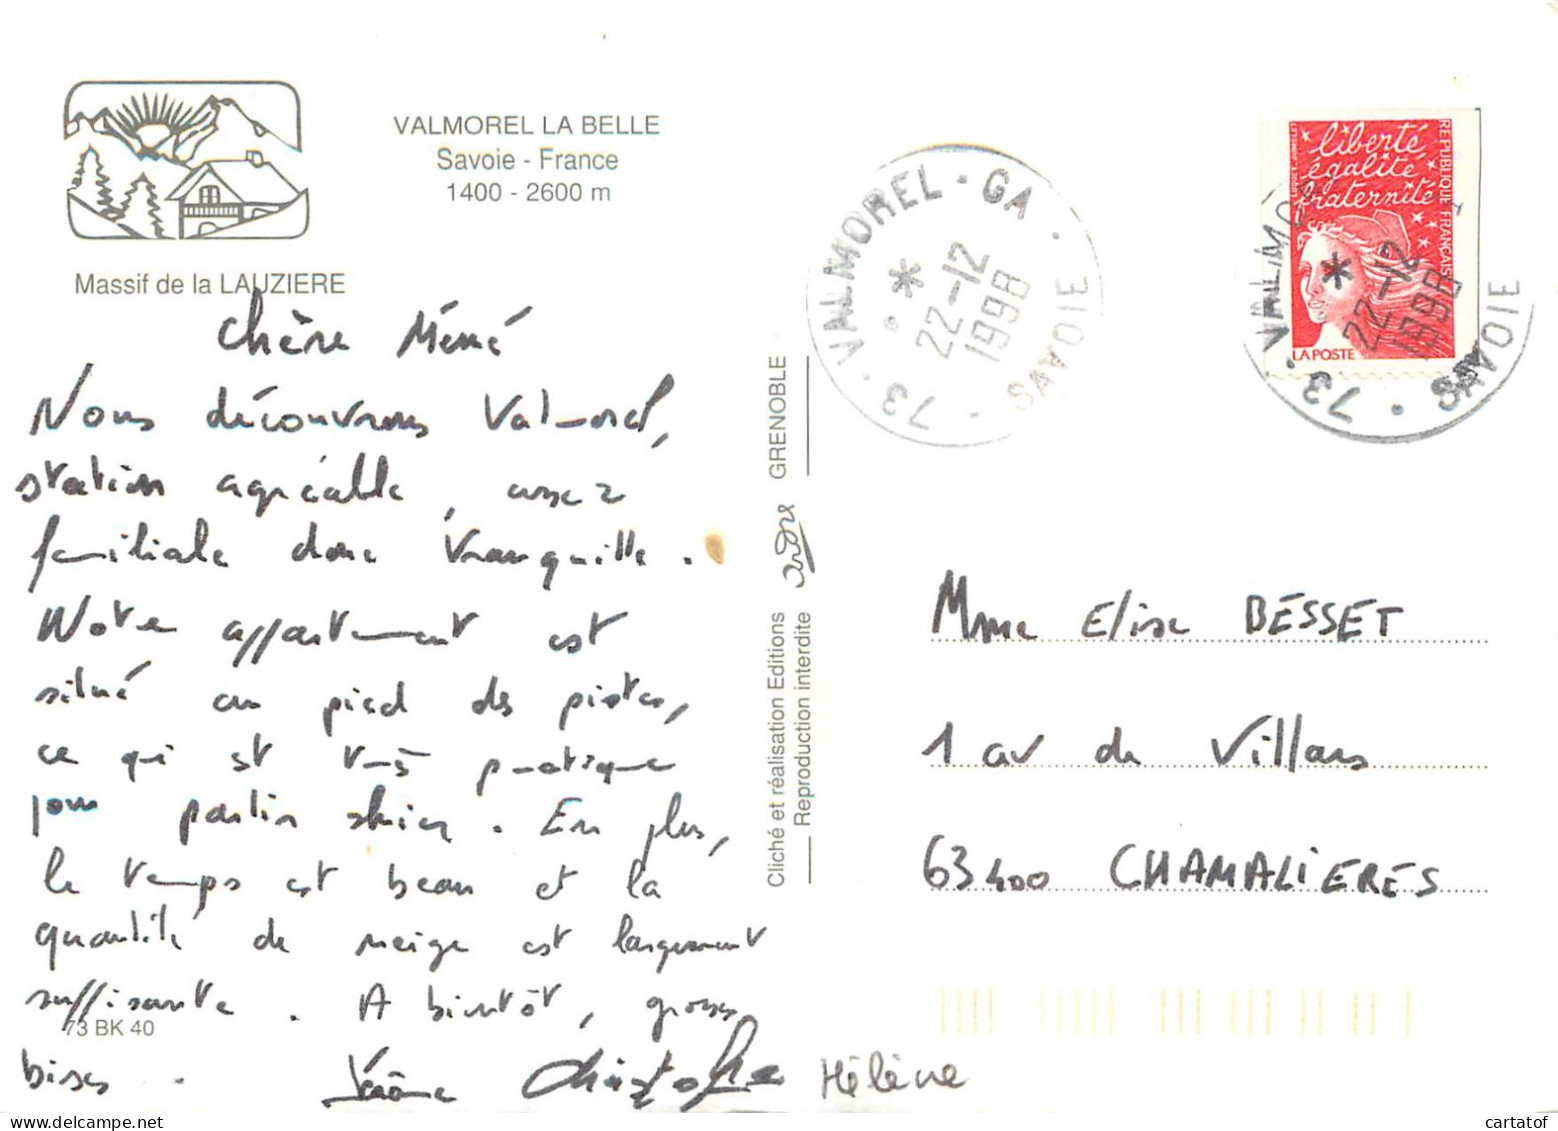 VALMOREL LA BELLE
Savoie - France
1400 - 2600 m
Massif de la LAUZIERE
Chère Mémé
Nous découvrons Valmorel,
station agréable, assez
familiale donc tranquille.
Notre appartement est
situé au pied des pistes,
ce qui est très pratique
pour partir skier. En plus,
le temps est beau et la
quantité de neige est largement
suffisante. A bientôt, grosses
bises.
Christophe Hélène
73 BK 40
Cliché et réalisation Editions
Reproduction interdite
andré
GRENOBLE
73 · VALMOREL · GA · SAVOIE ·
* 22-12
1998
liberté
égalité
fraternité
REPUBLIQUE FRANÇAISE
LA POSTE
73 · VALMO
SAVOIE
* 22-12
1998
Mme Elise BESSET
1 av de Villars
63400 CHAMALIERES
cartatof